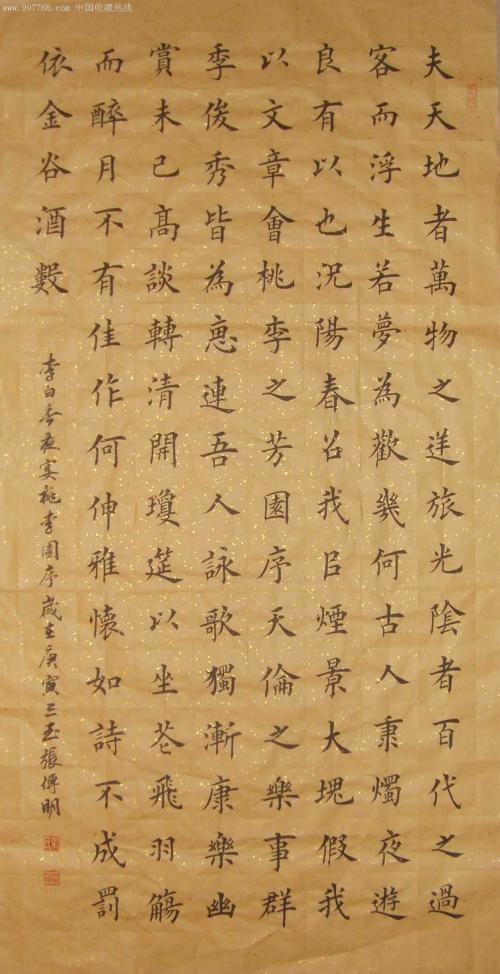 www.997788.com 中国收藏热线
夫天地者萬物之逆旅光陰者百代之過
客而浮生若夢為歡幾何古人秉燭夜遊
良有以也況陽春召我㠯煙景大塊假我
以文章會桃李之芳園序天倫之樂事群
季俊秀皆為惠連吾人詠歌獨漸康樂幽
賞未已高談轉清開瓊筵以坐花飛羽觴
而醉月不有佳作何伸雅懷如詩不成罰
依金谷酒數
李白春夜宴桃李園序歲在庚寅張傳明